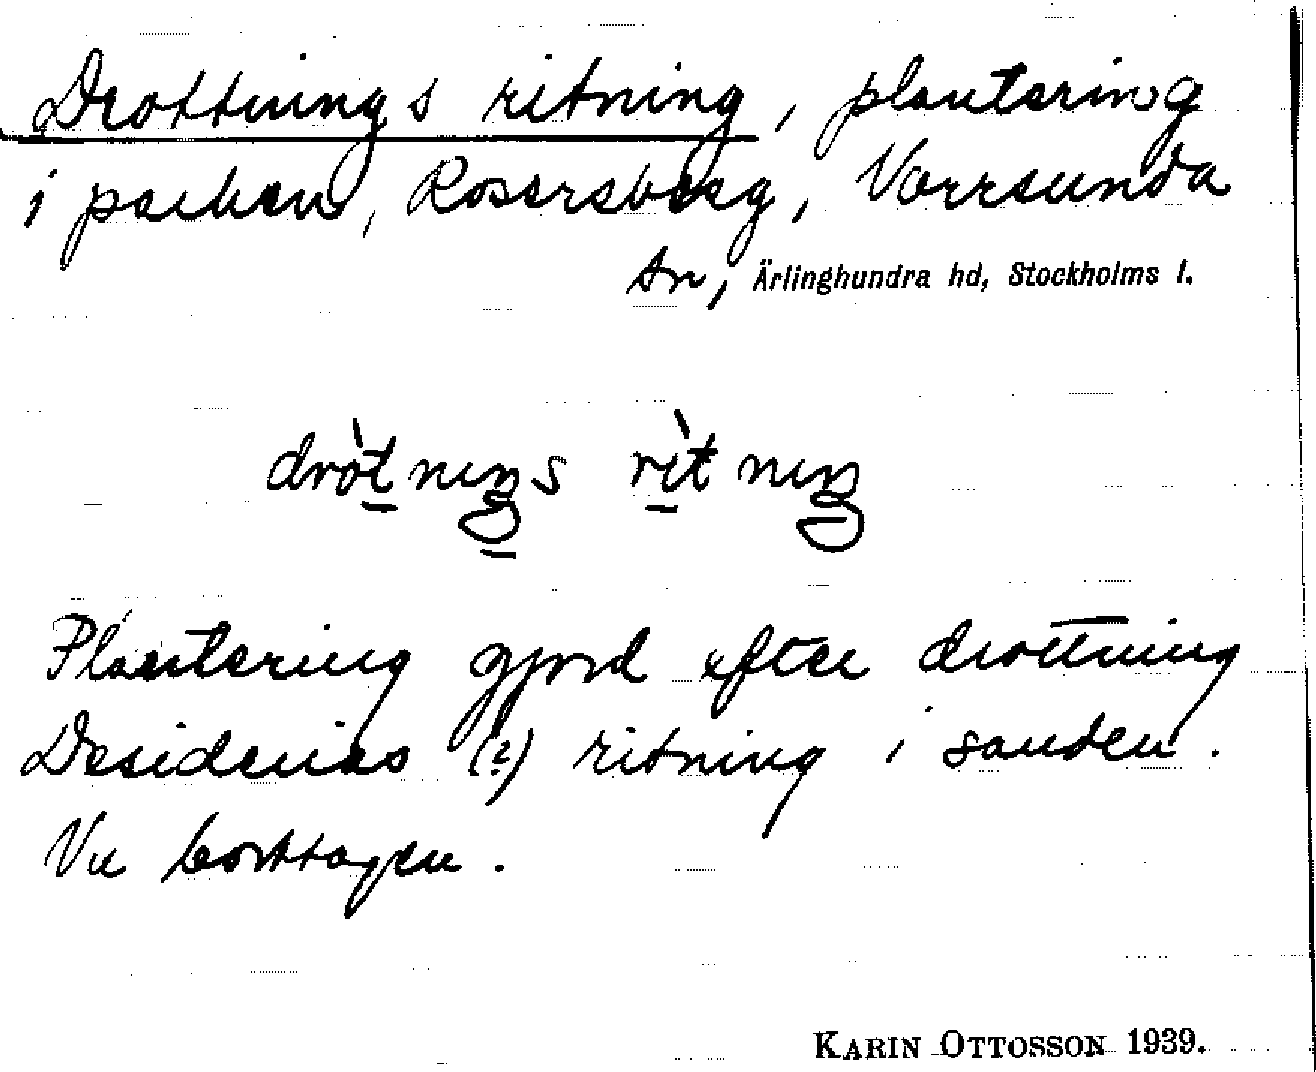 Drottnings ritning, plantering
i parken, Rosersberg, Norrsunda
sn, Ärlinghundra hd, Stockholms l.
drò̱tniŋs rì̱tniŋ
Plantering gjord efter drottning
Desiderias (?) ritning i sanden.
Nu borttagen.
KARIN OTTOSSON 1939.